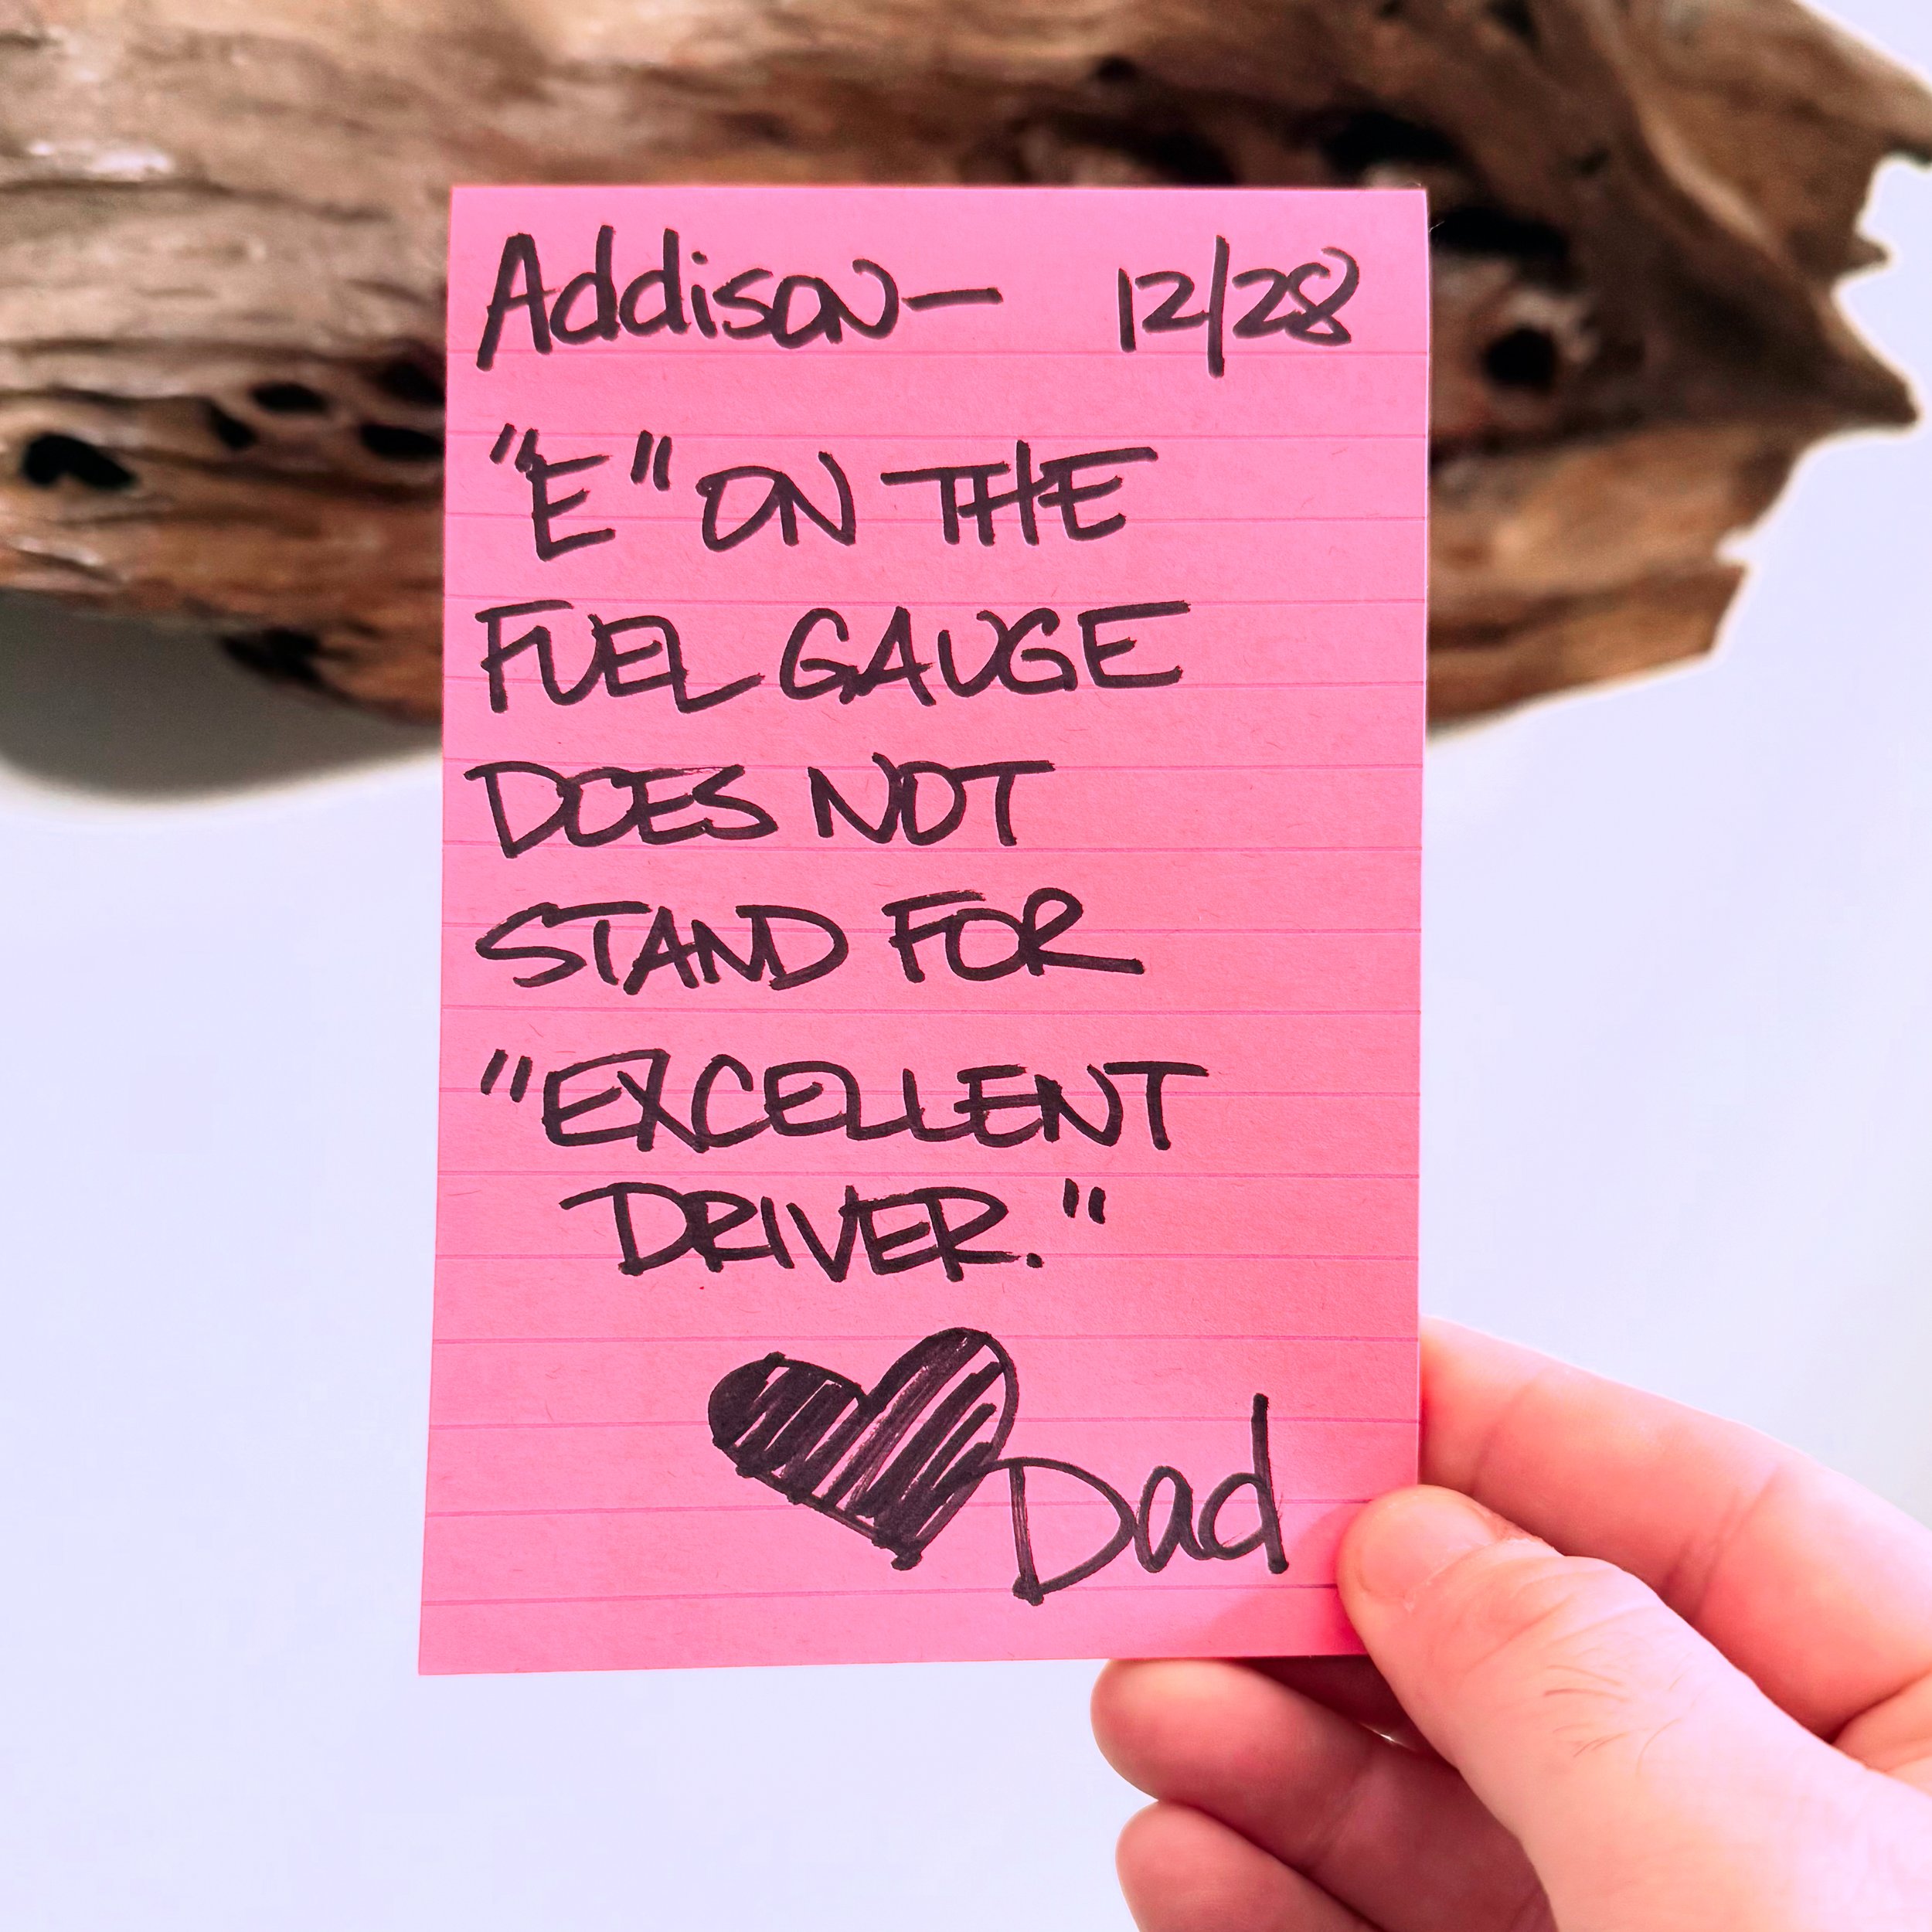 Addison— 12/28
"E" ON THE
FUEL GAUGE
DOES NOT
STAND FOR
"EXCELLENT
DRIVER."
Dad